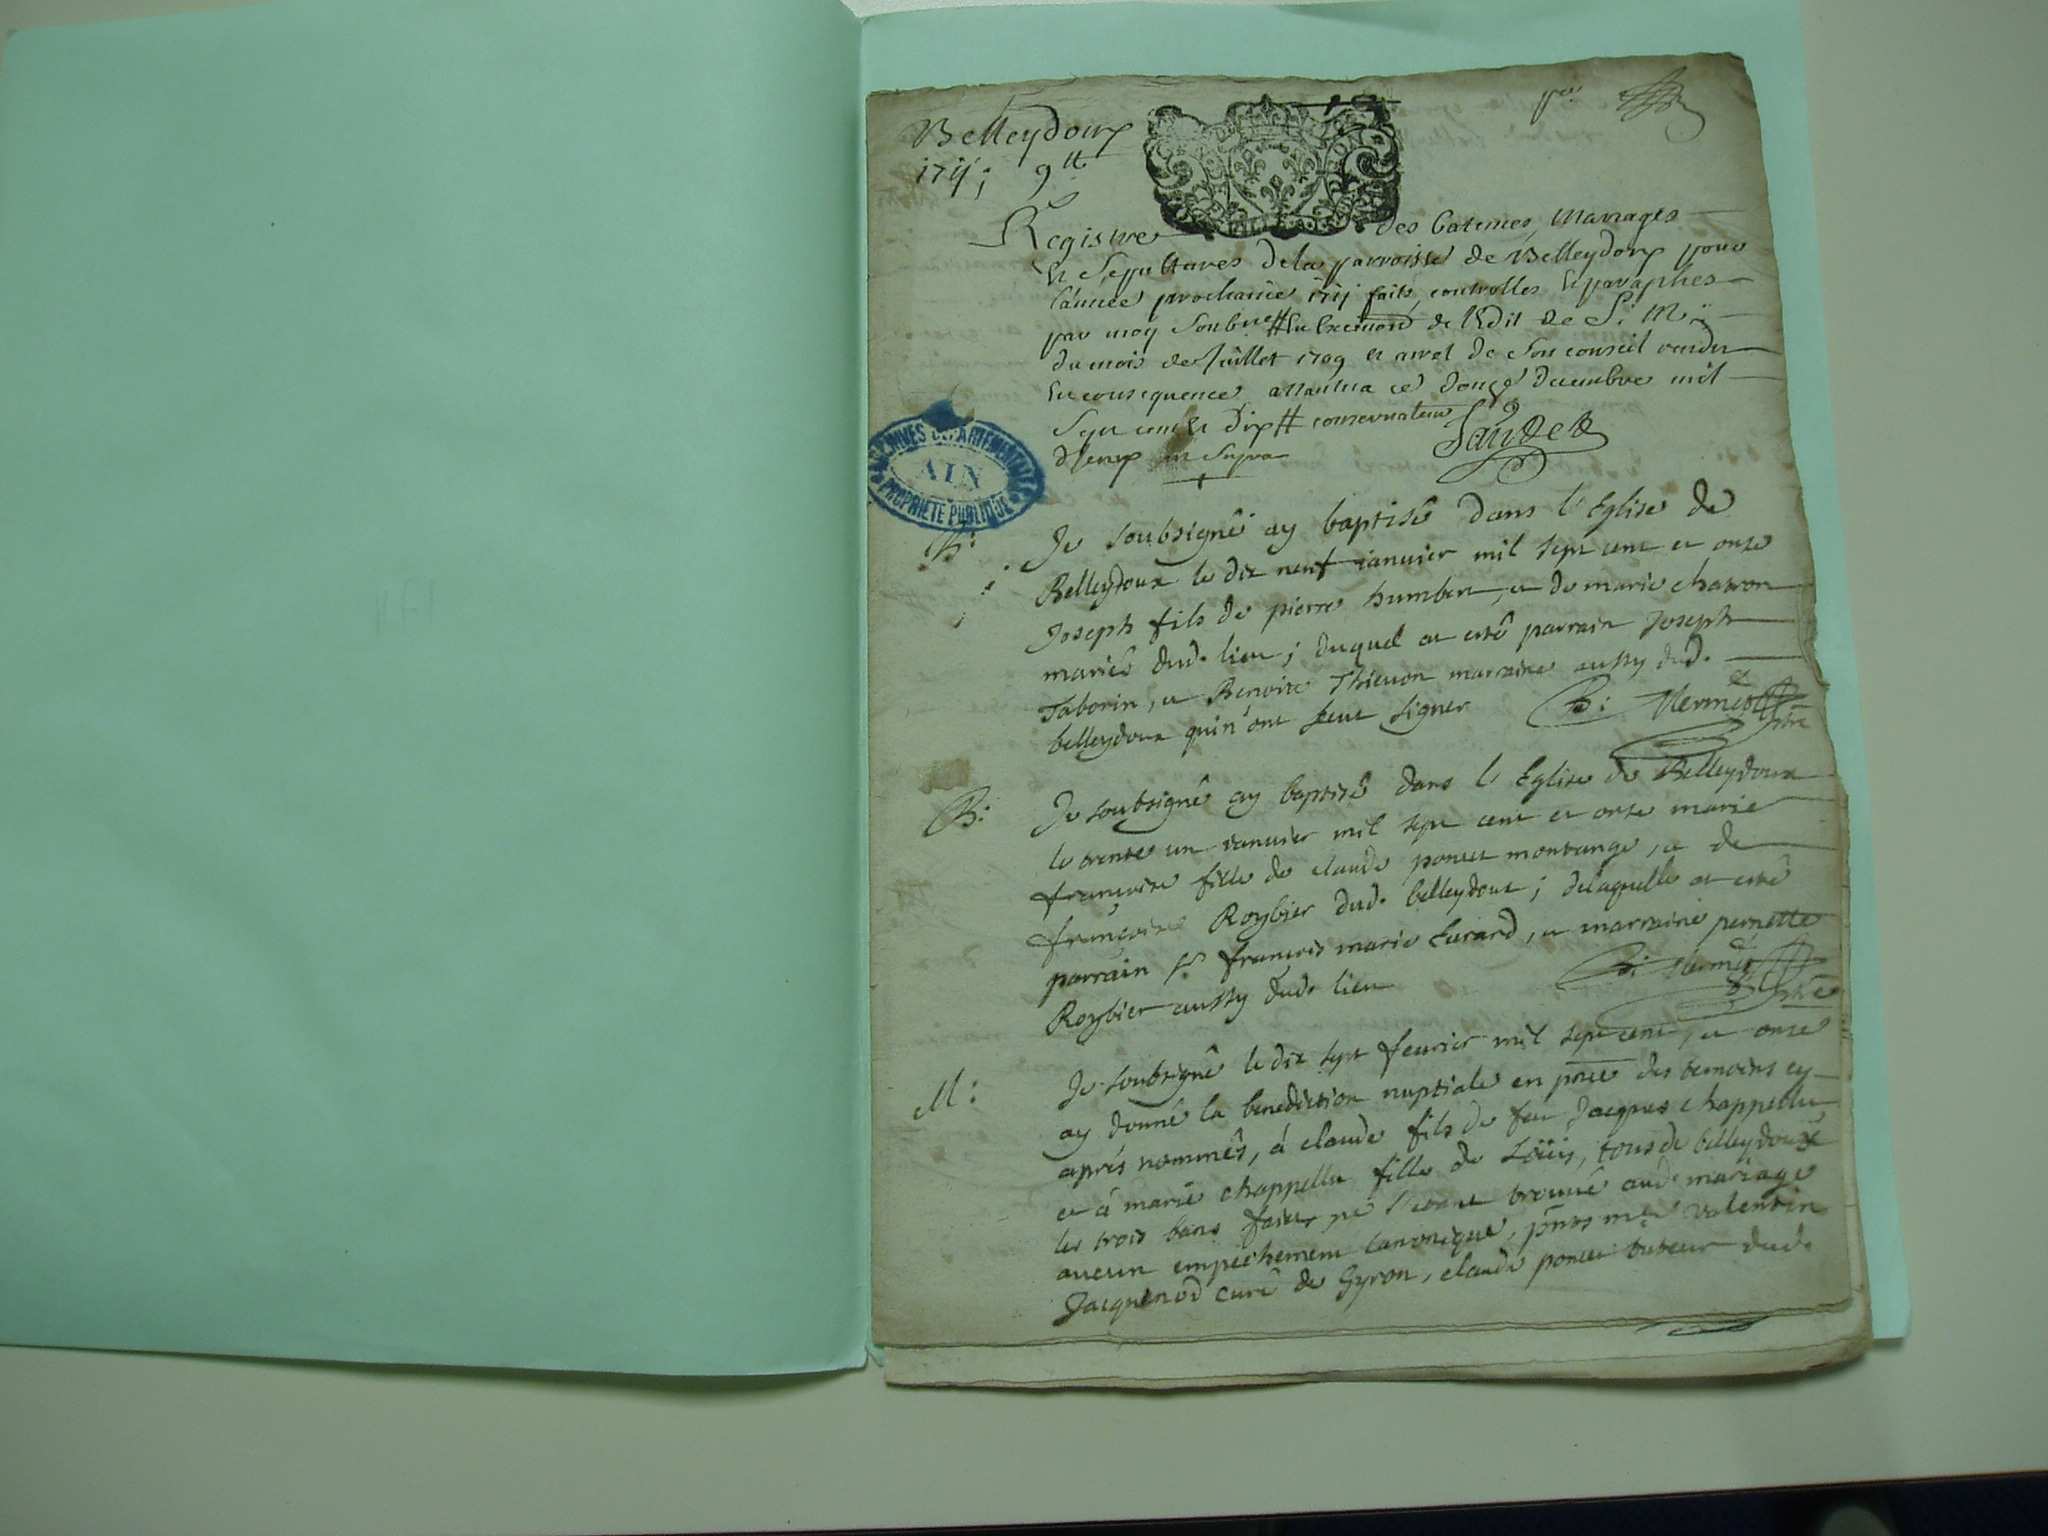 Belleydoux
1711 9tt
Registre des batemes, Mariages
et Sepultures de la parroisse de Belleydoux pour
l'année prochaine 1711 faits, controlles et paraphes
par moy Soubne en de l'Edit de S. M.
du mois de Juillet 1709 et arret de Son conseil rendu
en consequence a Nantua ce douze decembre mil
Sept cent et dix conservateur
ut Supra
ARCHIVES DEPARTEMENTALES
AIN
PROPRIETE PUBLIQUE
B:
Je soubsigné ay baptisé dans l'Eglise de
Belleydoux le dix neuf ianvier mil sept cent et onze
Joseph fils de pierre humbert, et de marie chavron
mariés dud. lieu; duquel at esté parrain Joseph
Taborin, et Benoite Thievon marraine aussy dud.
belleydoux qui n'ont sceut signer B: Mermet ptre
B:
Je soubsigné ay baptisé dans l'Eglise de Belleydoux
le trente un ianvier mil sept cent et onze marie
françoise fille de claude poncet montange, et de
françoise Roybier dud. belleydoux; de laquelle at esté
parrain sr françois marie Evrard, et marraine pernette
Roybier aussy dud. lieu B: Mermet ptre
M:
Je soubsigné le dix sept fevrier mil sept cent, et onze
ay donné la benediction nuptiale en pnce des temoins cy
aprés nommés, á claude fils de feu Jacques chappellu,
et á marie chappellu fille de Loüis, tous de belleydoux
les trois bans faits, ne s'etant trouvé aud. mariage
aucun empechement canonique, pnts mre valentin
Jacquenod curé de Gyron, claude poncet tuteur dud.